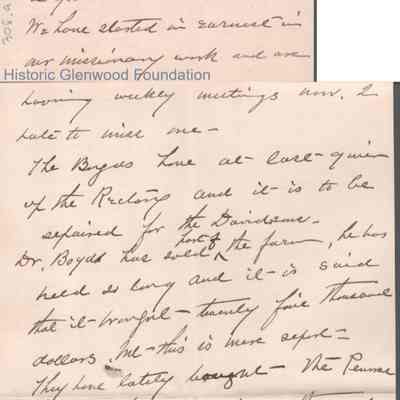 We have started in earnest in
our missionary work and are
Historic Glenwood Foundation
having weekly meetings now. I
hate to miss one -
The Boyds have at last given
up the Rectory and it is to be
repaired for the Davidsons -
Dr. Boyd has sold part of the farm, he has
held so long and it is said
that it brought twenty five thousand
dollars. this is mere report -
They have lately bought the Penrose